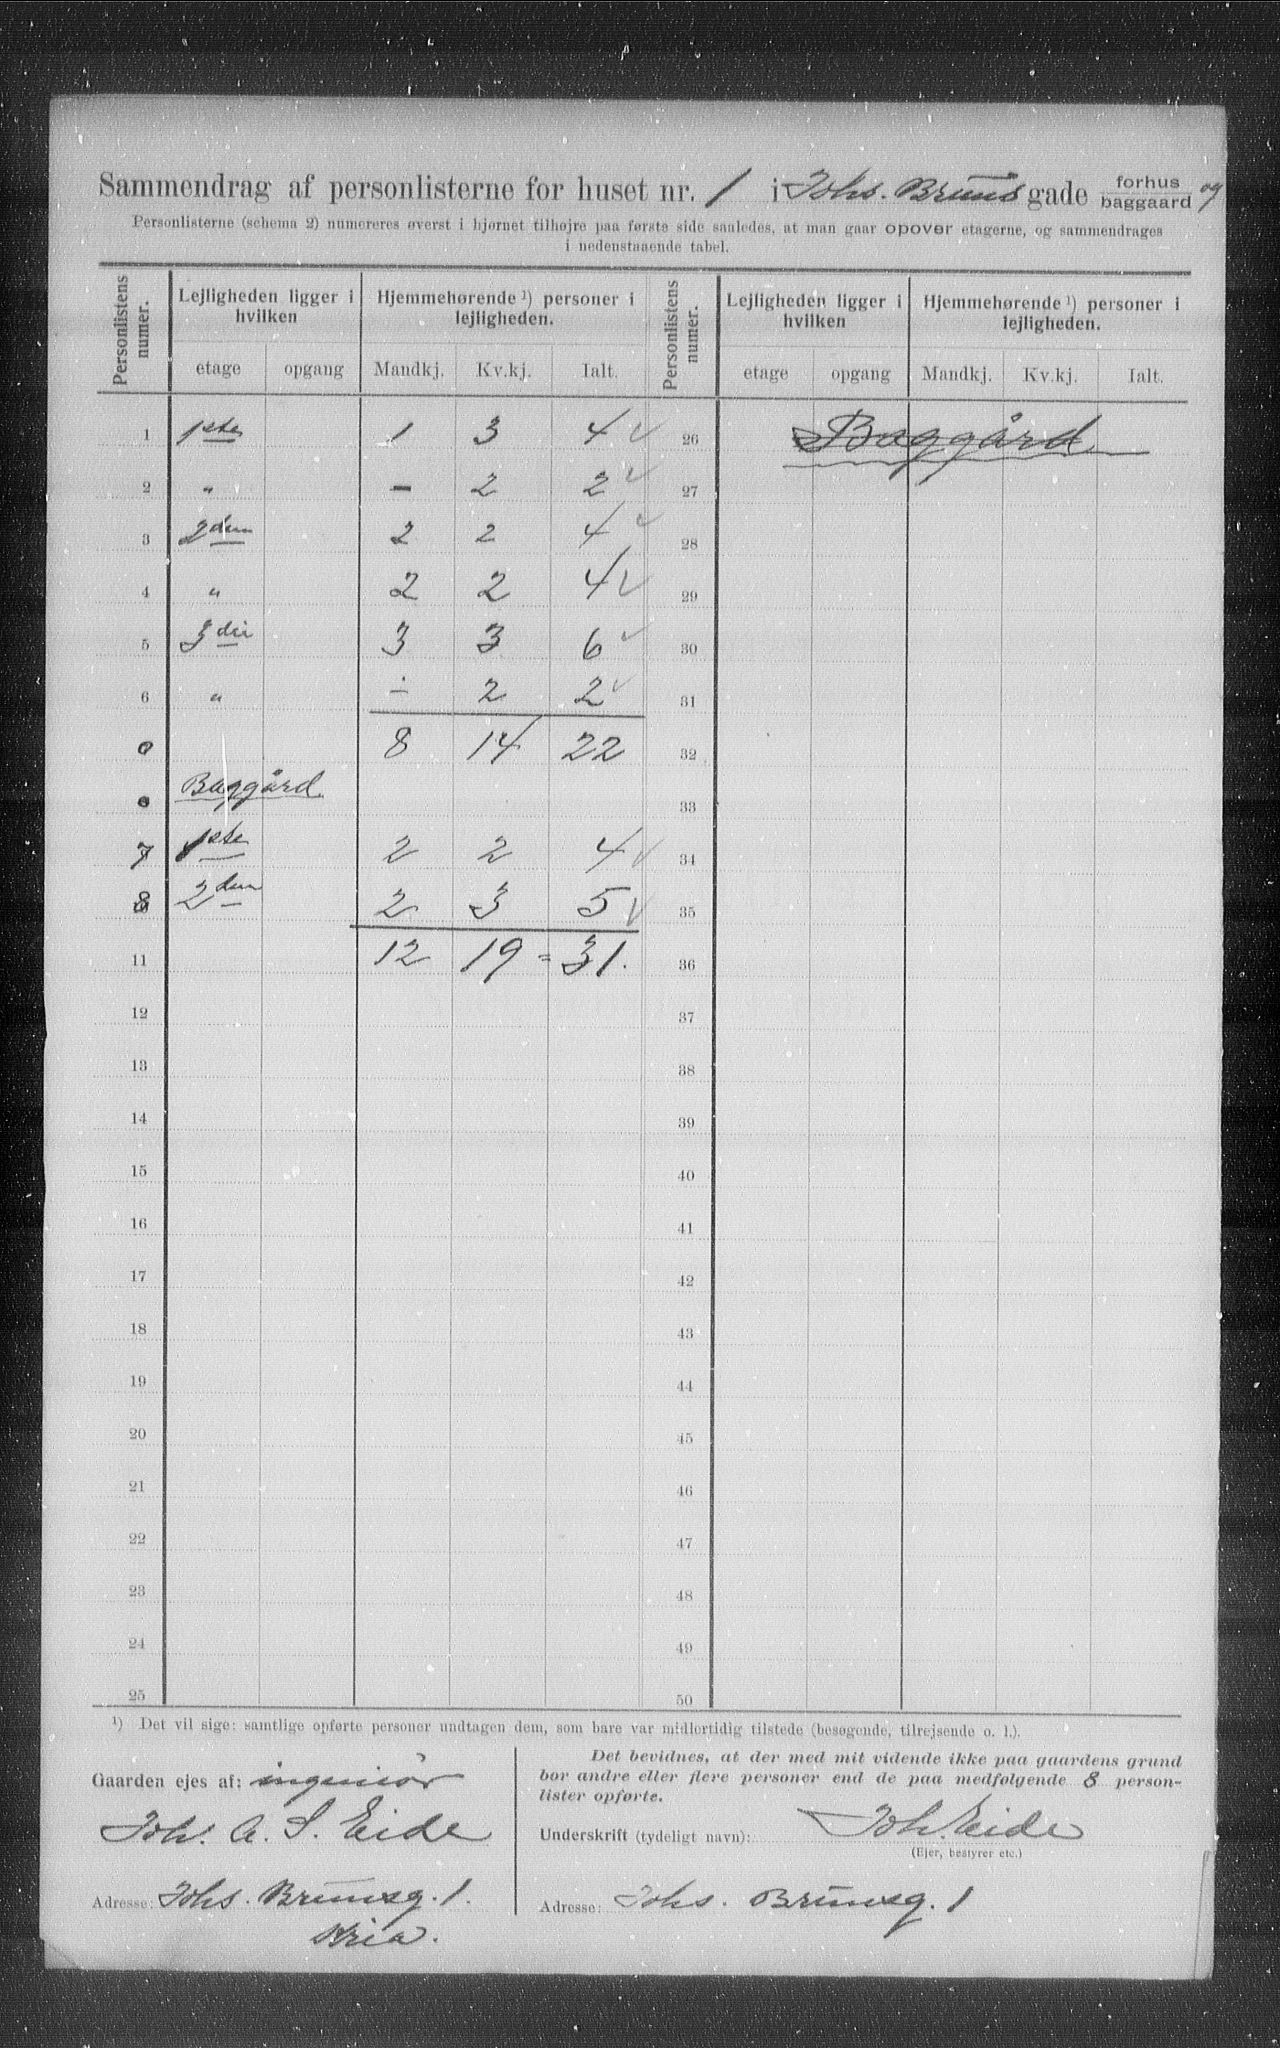 Sammendrag af personlisterne for huset nr. 1 i Johs. Bruns gade forhus og baggaard
Personlisterne (schema 2) numereres øverst i hjørnet tilhøjre paa første side saaledes, at man gaar opover etagerne, og sammendrages
i nedenstaaende tabel.
Personlistens numer. Lejligheden ligger i hvilken Hjemmehørende ¹) personer i lejligheden. Personlistens numer. Lejligheden ligger i hvilken Hjemmehørende ¹) personer i lejligheden.
etage opgang Mandkj. Kv.kj. Ialt. etage opgang Mandkj. Kv.kj. Ialt.
1 1ste 1 3 4 ✓ 26 Baggård
2 " - 2 2 ✓ 27
3 2den 2 2 4 ✓ 28
4 " 2 2 4 ✓ 29
5 3die 3 3 6 ✓ 30
6 " ÷ 2 2 ✓ 31
8 14 22 32
Baggård 33
7 1ste 2 2 4 ✓ 34
8 2den 2 3 5 ✓ 35
11 12 19 = 31. 36
12 37
13 38
14 39
15 40
16 41
17 42
18 43
19 44
20 45
21 46
22 47
23 48
24 49
25 50
¹) Det vil sige: samtlige opførte personer undtagen dem, som bare var midlertidig tilstede (besøgende, tilrejsende o. l.).
Gaarden ejes af: ingeniör
Joh. A. S. Eide
Adresse: Johs. Brunsg. 1.
Kria.
Det bevidnes, at der med mit vidende ikke paa gaardens grund
bor andre eller flere personer end de paa medfølgende 8 person-
lister opførte.
Underskrift (tydeligt navn): Joh. Eide
(Ejer, bestyrer etc.)
Adresse: Johs. Brunsg. 1